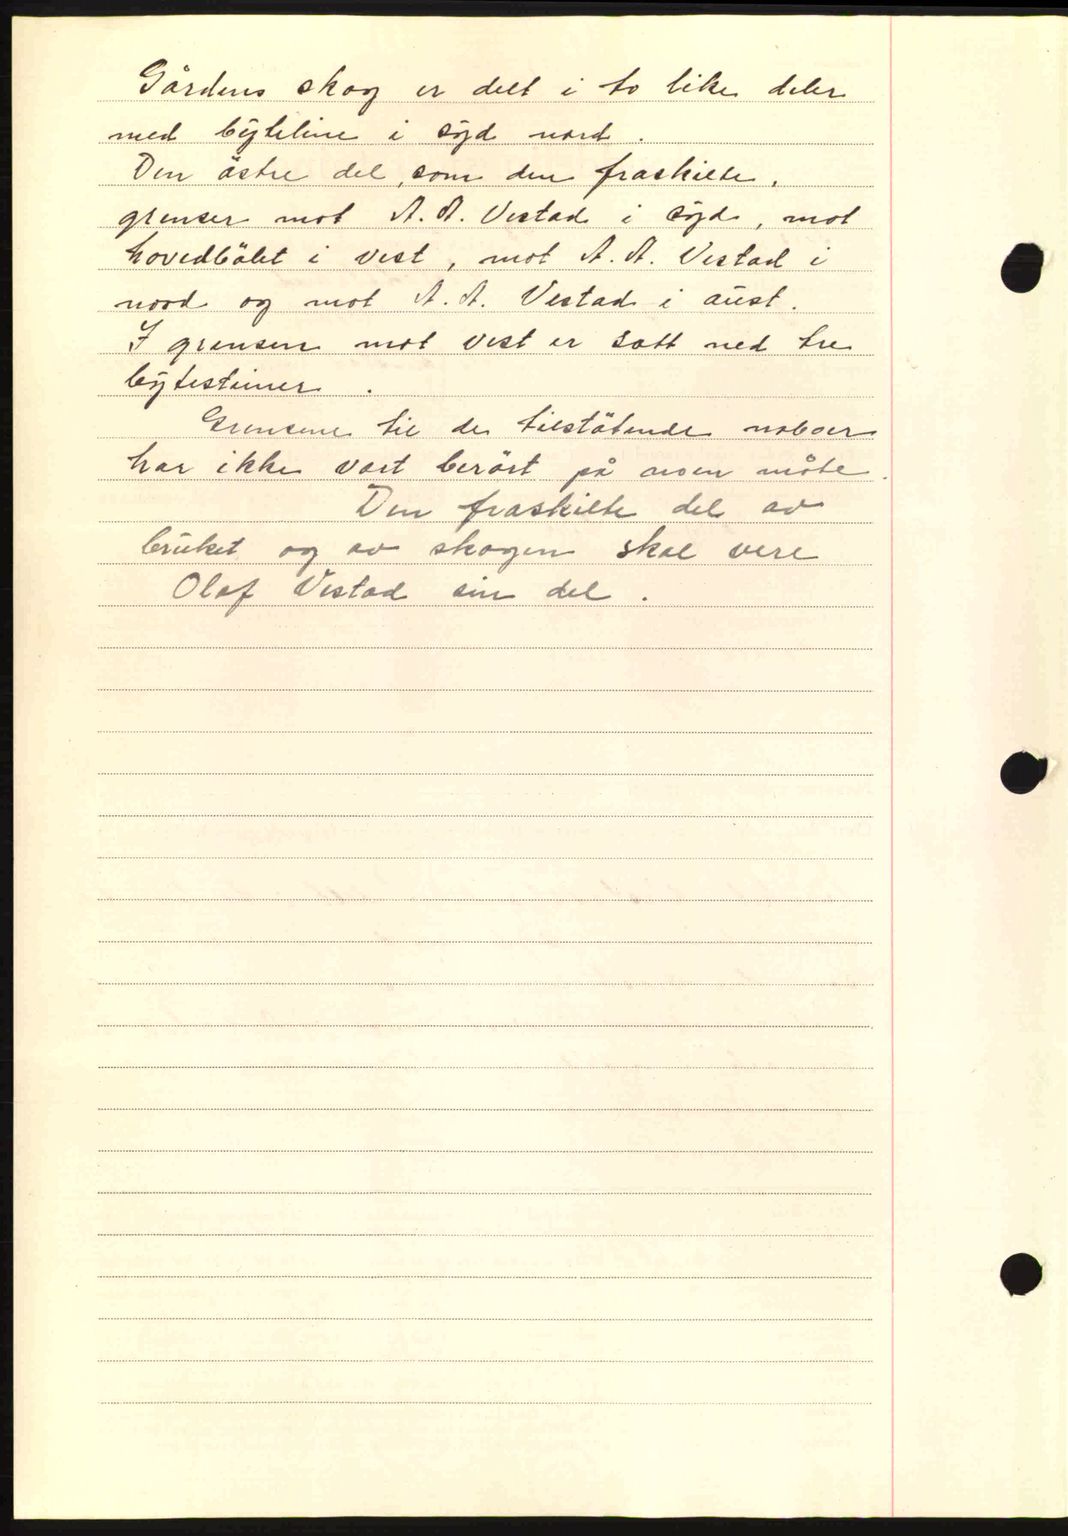 Gårdens skog er delt i to like deler
med byteline i søyd nord.
Den østre del, som den fraskilte,
grenser mot A. A. Vestad i søyd, mot
hovedbølet i vest, mot A. A. Vestad i
nord og mot A. A. Vestad i aust.
I grensen mot vest er satt ned tre
bytesteiner.
Grensene til de tilstøtende naboer
har ikke vært berørt på noen måte.
Den fraskilte del av
bruket og av skogen skal vere
Olaf Vestad sin del.